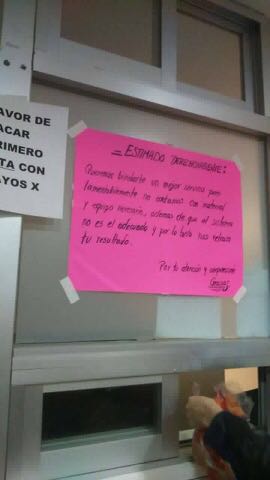 AVOR DE
ACAR
RIMERO
TA CON
AYOS X
- ESTIMADO DERECHOHABIENTE:
Queremos brindarte un mejor servicio pero
lamentablemente no contamos con material
y equipo necesario, ademas de que el sistema
no es el adecuado y por lo tanto nos retrasa
tu resultado.
Por tu atención y comprensión
Gracias